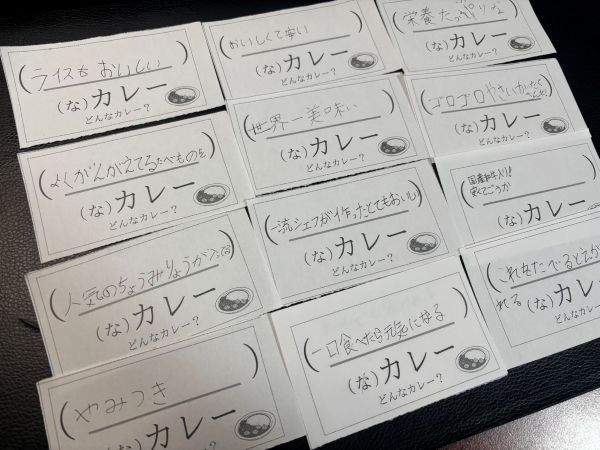 ライスも おいしい
(な)カレー
どんなカレー?
おいしくて安い
(な)カレー
どんなカレー?
栄養たっぷりな
(な)カレー
どんなカレー?
よくかんがえてるたべものを
(な)カレー
どんなカレー?
世界一美味い
(な)カレー
どんなカレー?
ゴロゴロやさいがたく
さんの
(な)カレー
どんなカレー?
人気のちょうみりょうが入ってる
(な)カレー
どんなカレー?
一流シェフが作ったとてもおいしい
(な)カレー
どんなカレー?
国産和牛入り!
安くてごうか
(な)カレー
どんなカレー?
やみつき
(な)カレー
一口食べたら元気になる
(な)カレー
どんなカレー?
これをたべると
れる
(な)カレー
どんなカレー?